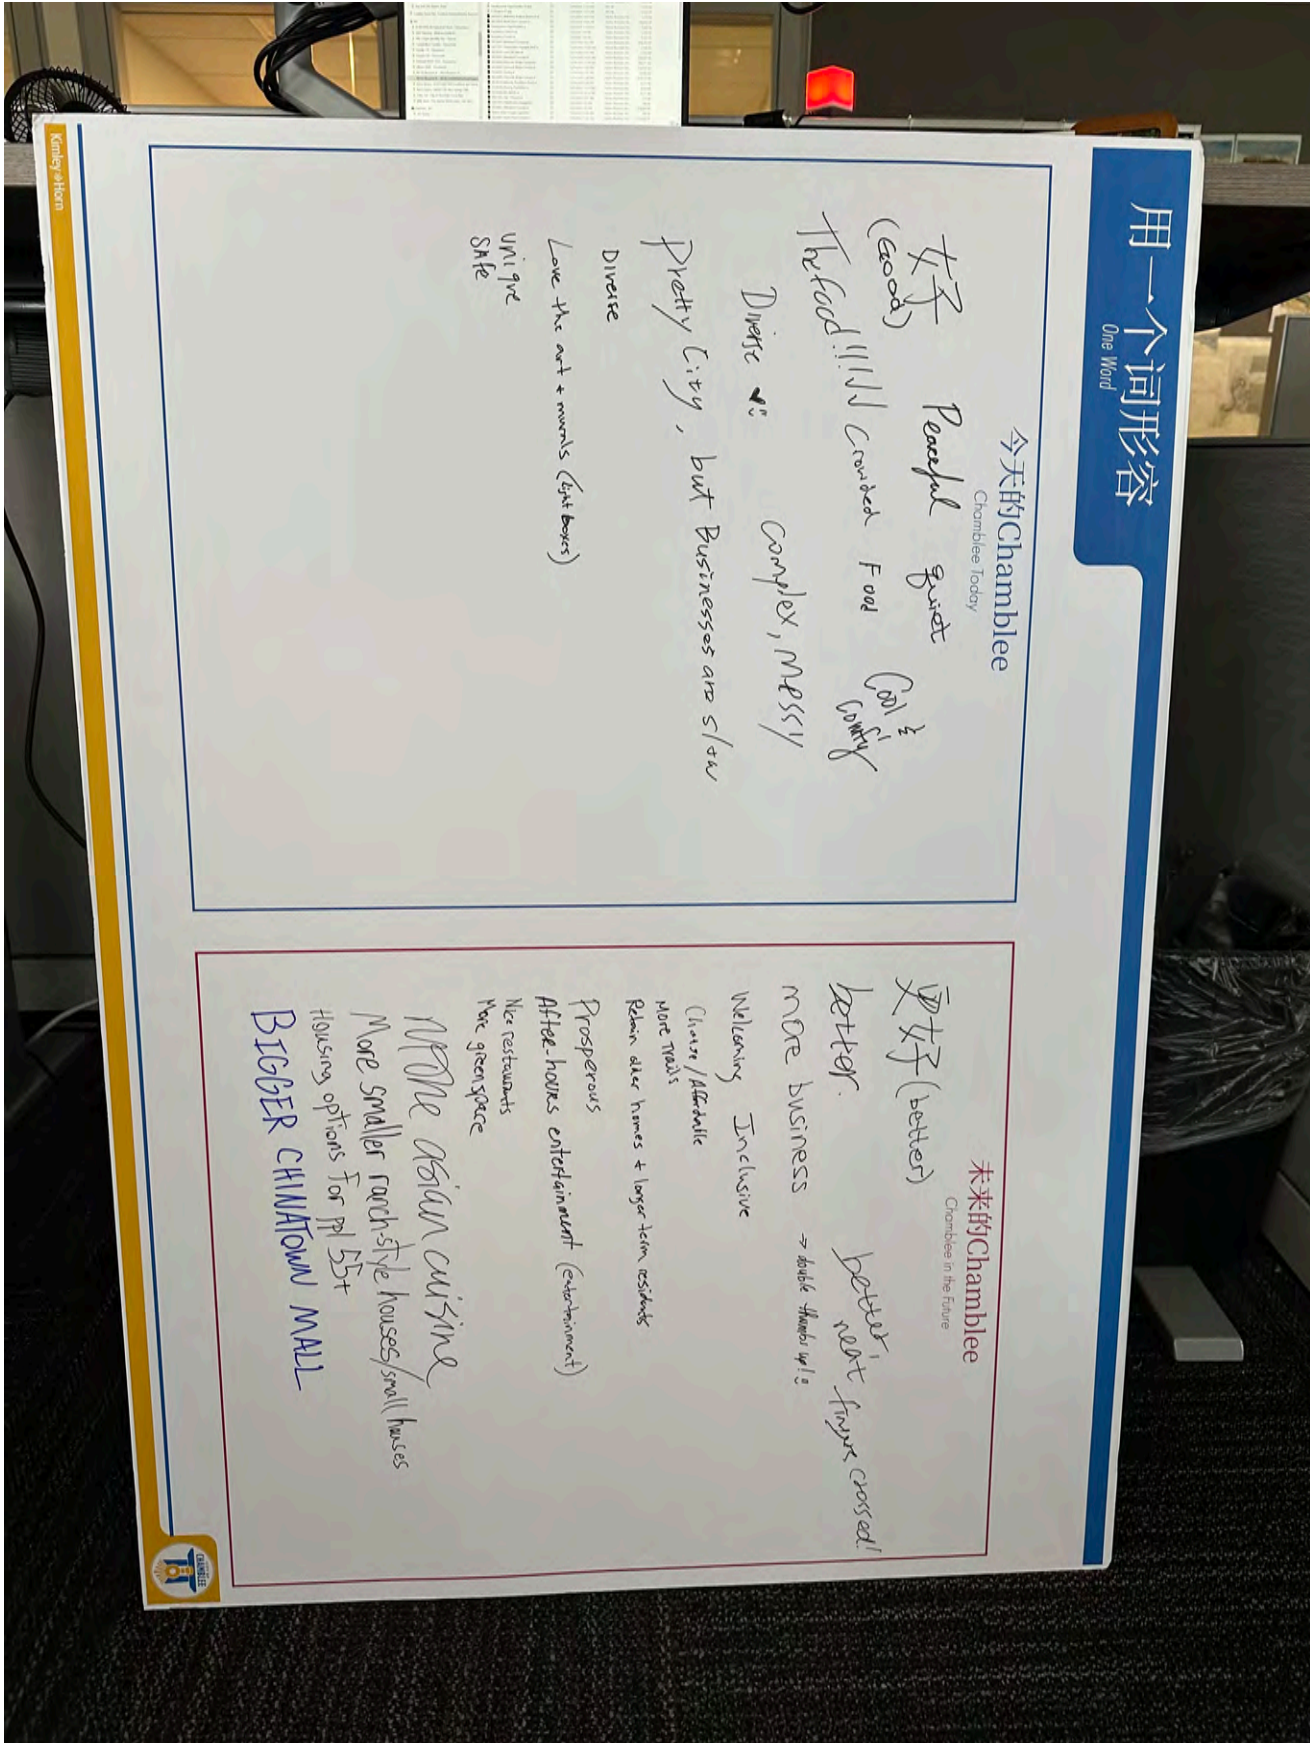 用一个词形容
One Word
今天的Chamblee
Chamblee Today
好
(Good)
Peaceful quiet
Cool & comfy
The food!!! Crowded Food
Diverse
complex, messy
Pretty City, but Businesses are slow
Diverse
Love the art + murals (light boxes)
unique
SAfe
未来的Chamblee
Chamblee in the Future
更好 (better)
better.
better, neat fingers crossed!
more business → double thumbs up!
Welcoming Inclusive
/Affordable
More Trails
Retain older homes + longer term residents
Prosperous
After-hours entertainment (entertainment)
Nice restaurants
More greenspace
MORE asian cuisine
More smaller ranch-style houses/small houses
Housing options for ppl 55+
BIGGER CHINATOWN MALL
Kimley»Horn
CHAMBLEE